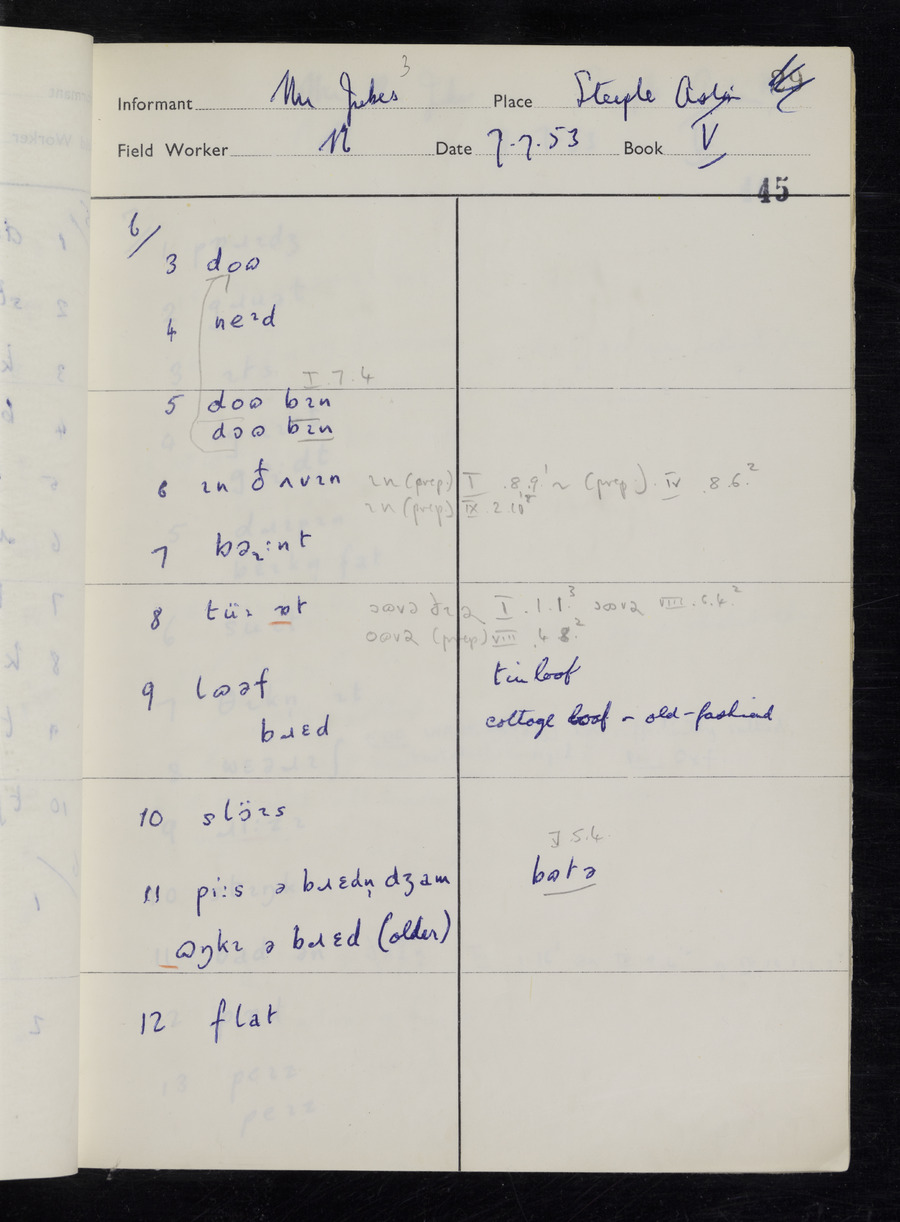 3
Informant Mr Jukes Place Steeple Aston
Field Worker Date 7.7.53 Book V
45
6/
3 doɷ
4 neɪd
I.7.4
5 doɷ bɪn
dɔɷ bɪn
6 ɪn ðʌvɪn ɪn (prep.) I .8.9¹ ~ (prep.) IV .8.6.²
ɪn (prep) IX.2.10
7 bəɪ:nt
8 tü:ɪ ɒt ɔɷvə I .1.1³ ɔɷvə VIII .5.4.²
oɷvə (prep) VIII .4 8.²
9 lɷəf tin loof
bɹɛd cottage loof - old-fashioned
10 slöɪs
I 5.4
11 pi:s ə bɹɛdn̩ dʒam bɷtə
ɷŋkɪ ə bɹɛd (older)
12 flat